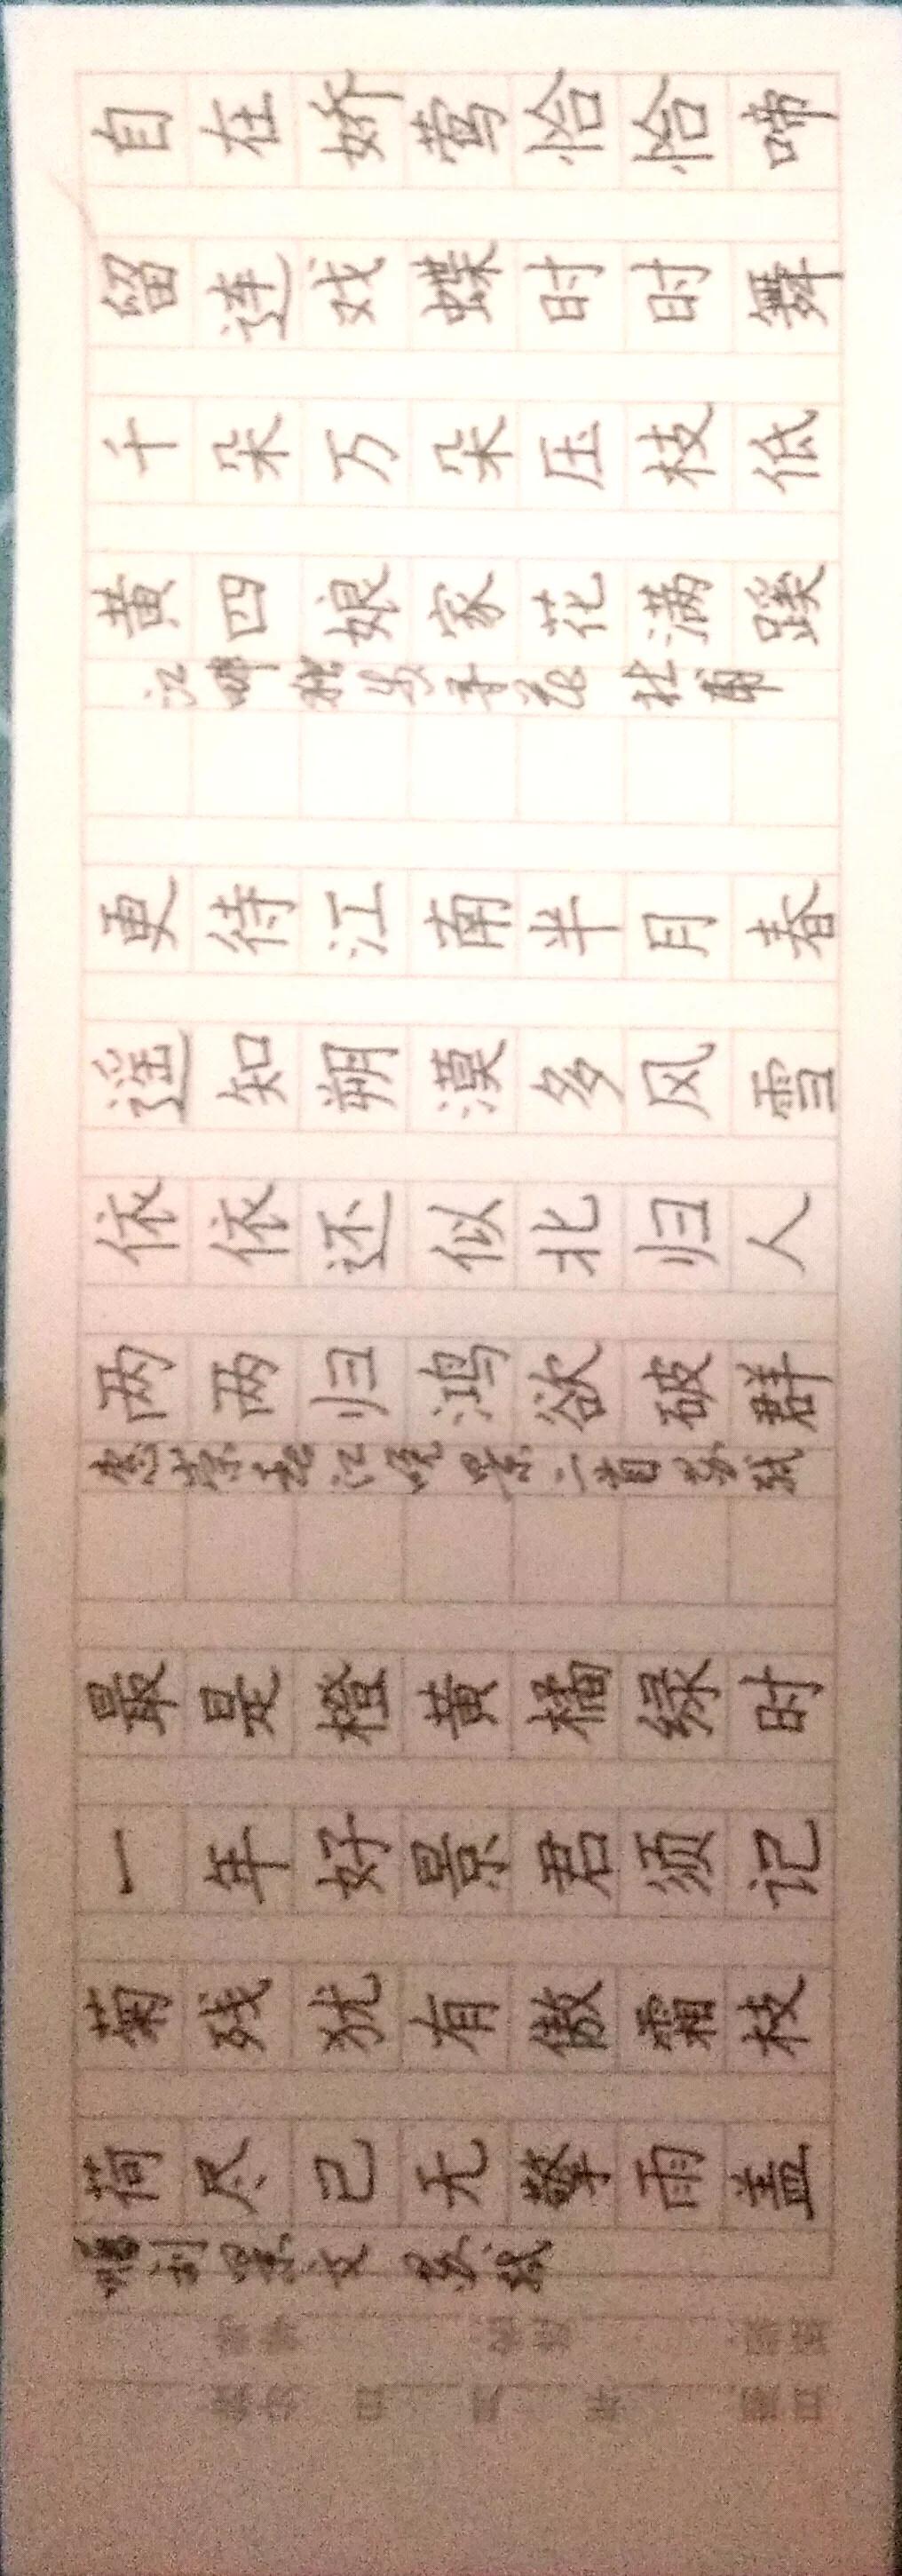 赠刘景文 苏轼
荷尽已无擎雨盖
菊残犹有傲霜枝
一年好景君须记
最是橙黄橘绿时
惠崇春江晚景二首苏轼
两两归鸿欲破群
依依还似北归人
遥知朔漠多风雪
更待江南半月春
江畔独步寻花 杜甫
黄四娘家花满蹊
千朵万朵压枝低
留连戏蝶时时舞
自在娇莺恰恰啼